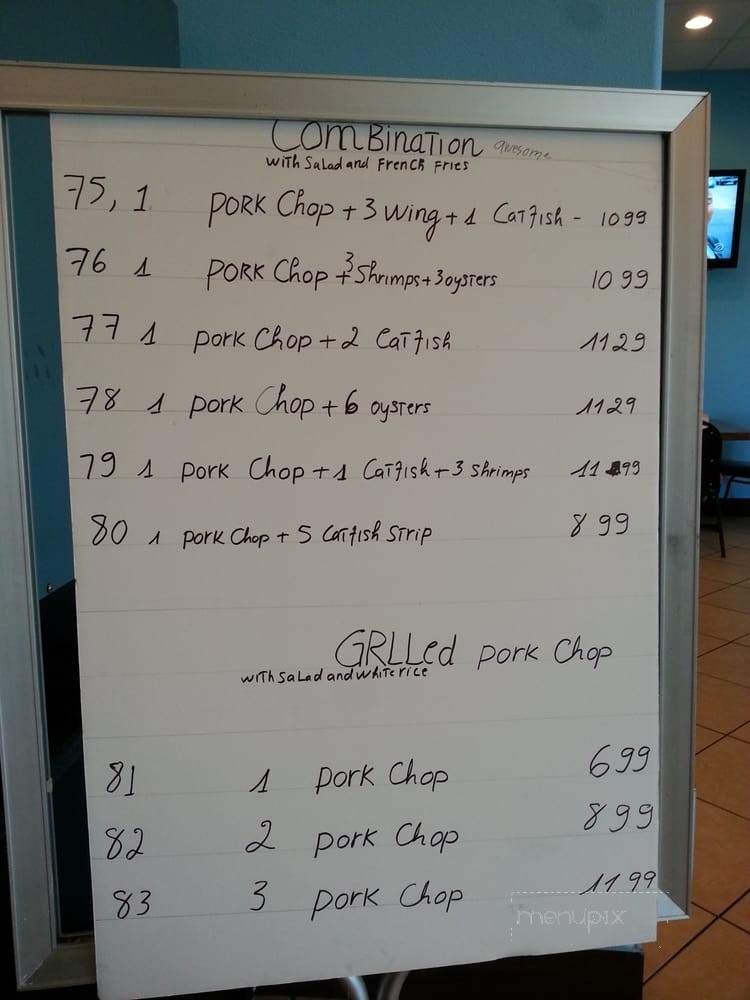 ComBinaTion awesome
with Salad and French Fries
75, 1 PORK Chop + 3 Wing + 1 Catfish - 1099
76 1 PORK Chop + 3 Shrimps + 3 oysters 1099
77 1 pork Chop + 2 Catfish 1129
78 1 pork Chop + 6 oysters 1129
79 1 pork Chop + 1 Catfish + 3 shrimps 11 99
80 1 pork Chop + 5 Catfish Strip 8 99
GRLLed pork Chop
with salad and white rice
81 1 pork Chop 699
82 2 pork Chop 899
83 3 pork Chop 1199
menupix